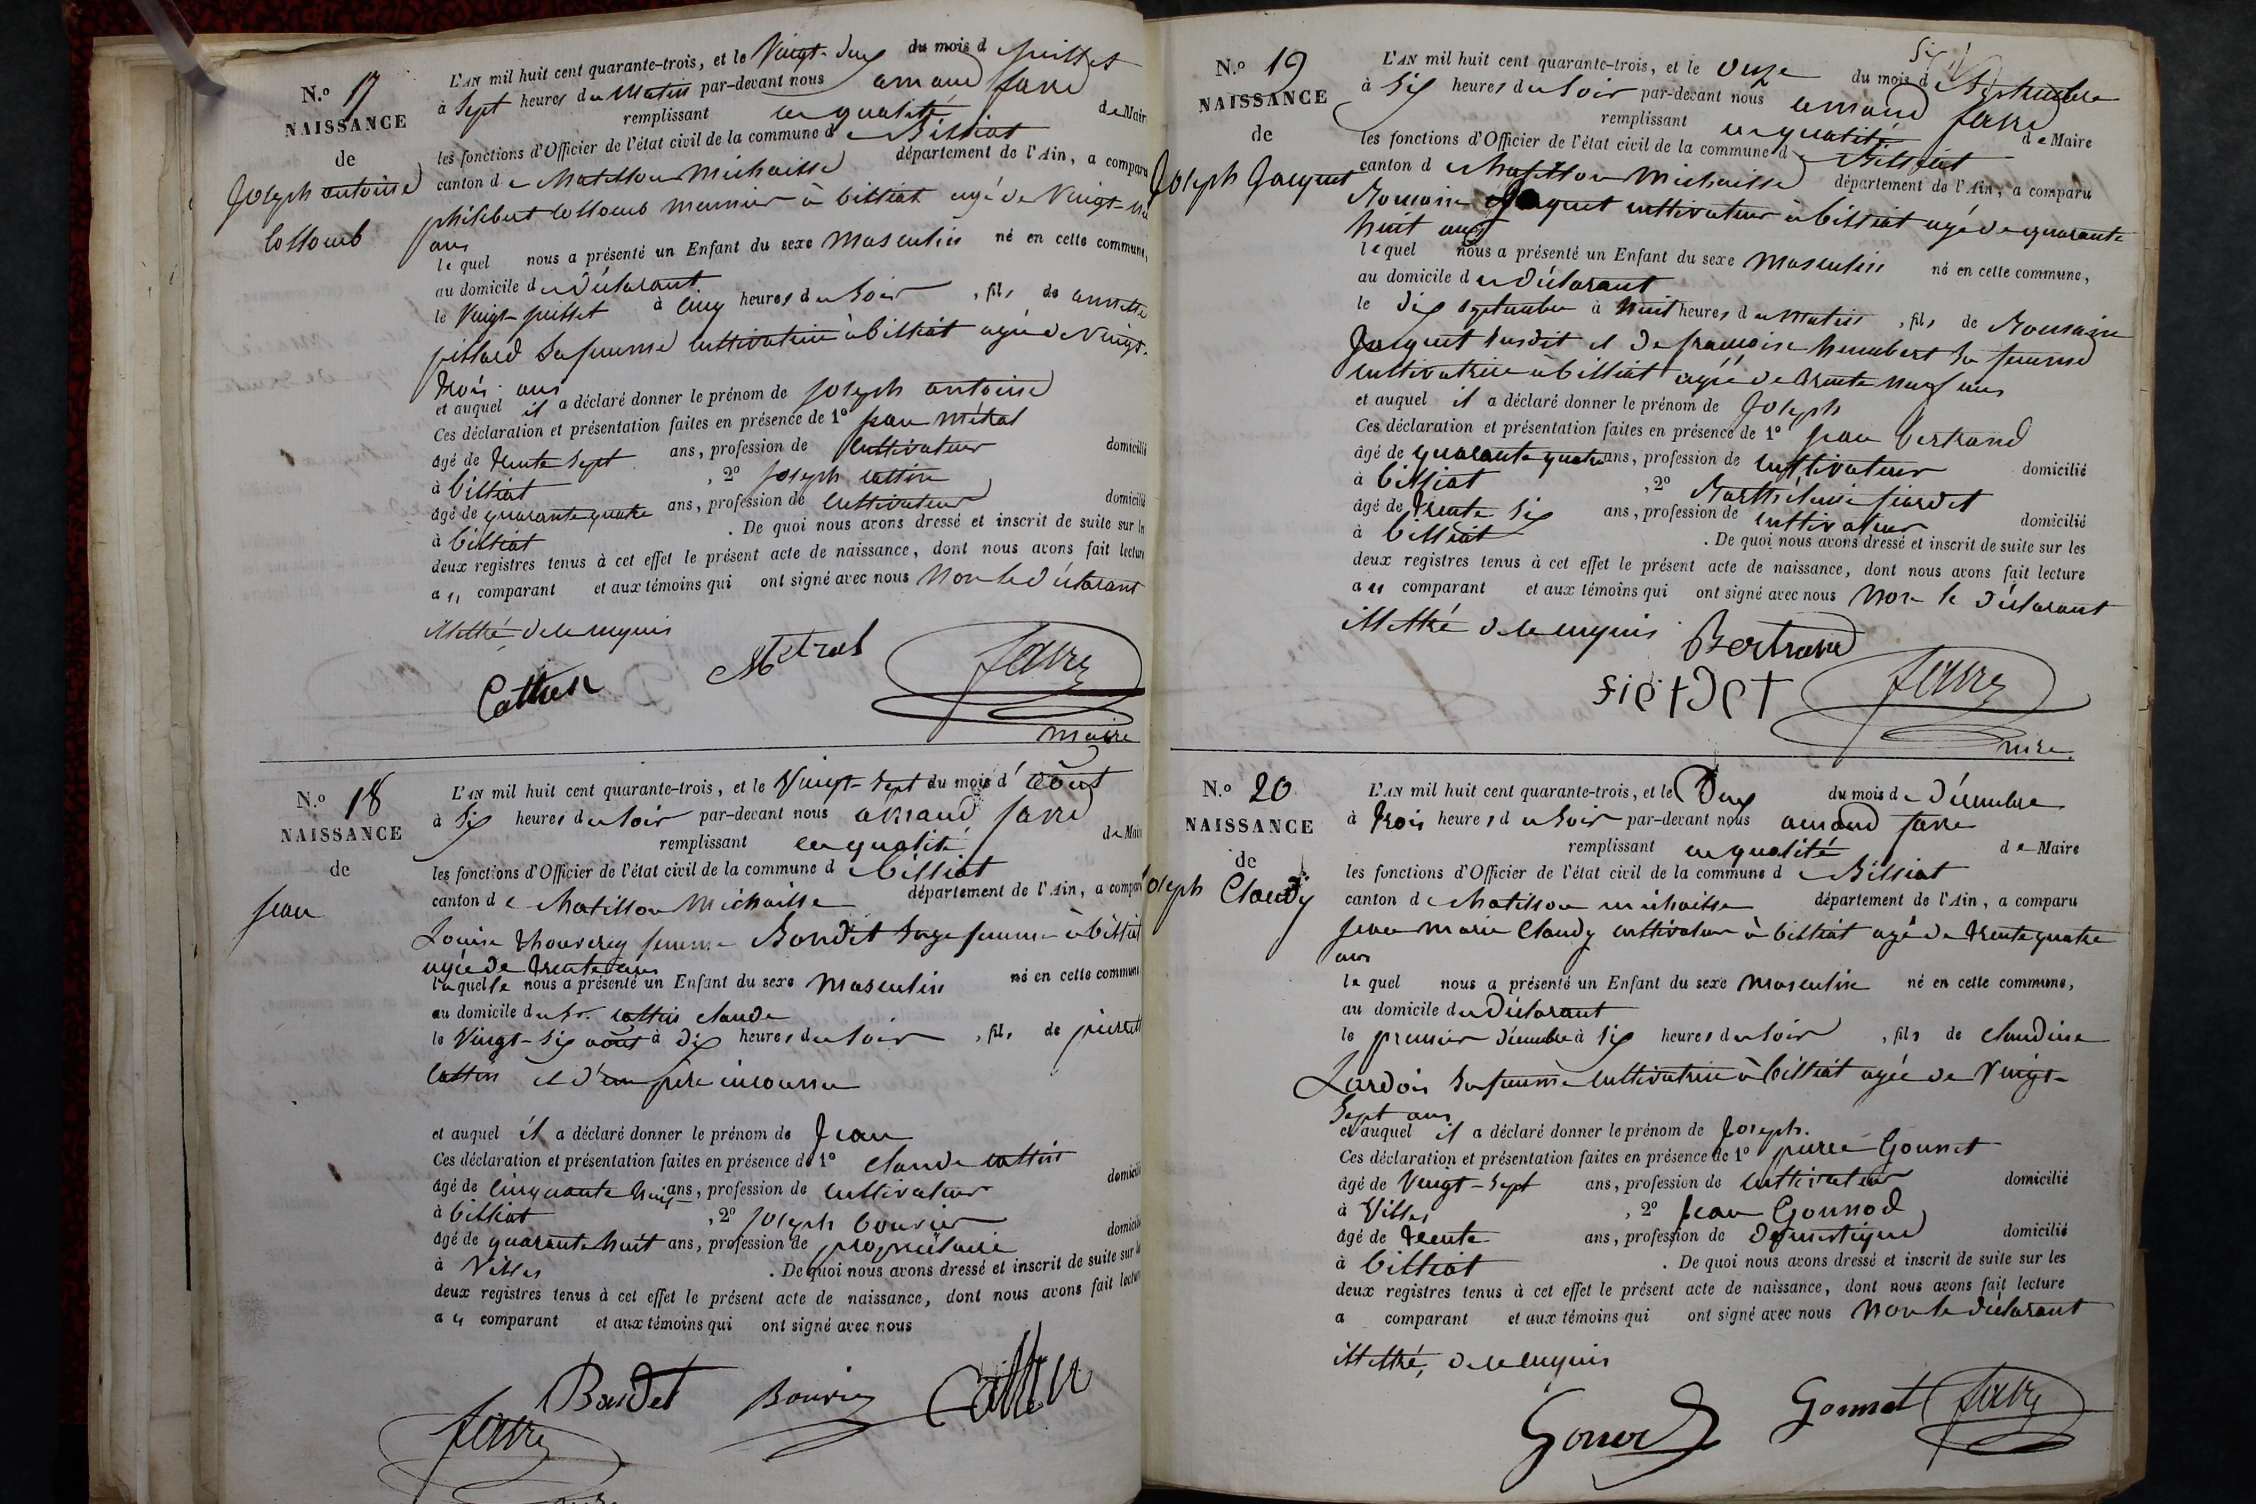 N.o 17
NAISSANCE
de
Joseph antoine
Collomb
L'AN mil huit cent quarante-trois, et le Vingt-deux du mois d juillet
à Sept heures du Matin par-devant nous amand favre
remplissant en qualité de Maire
les fonctions d'Officier de l'état civil de la commune de Billiat
canton de Chatillon Michaille département de l'Ain, a comparu
philibert Collomb meunier à billiat agé de Vingt-
ans
lequel nous a présenté un Enfant du sexe Masculin né en cette commune,
au domicile du Déclarant
le Vingt juillet à Cinq heures du Soir, fils de annette
pillard Sa femme Cultivatrice à billiat agée de Vingt-
trois ans
et auquel il a déclaré donner le prénom de joseph antoine
Ces déclaration et présentation faites en présence de 1o jean Métral
âgé de trente Sept ans, profession de Cultivateur domicilié
à billiat, 2o joseph Cattin
âgé de quarante quatre ans, profession de Cultivateur domicilié
à billiat. De quoi nous avons dressé et inscrit de suite sur les
deux registres tenus à cet effet le présent acte de naissance, dont nous avons fait lecture
au comparant et aux témoins qui ont signé avec nous Non le déclarant
illettré de ce enquis
Cattin Métral favre
maire
N.o 18
NAISSANCE
de
jean
L'AN mil huit cent quarante-trois, et le Vingt-Sept du mois d'août
à Six heures du Soir par-devant nous amand favre
remplissant en qualité de Maire
les fonctions d'Officier de l'état civil de la commune de billiat
canton de Chatillon Michaille département de l'Ain, a comparu
Louise femme Bondet Sage femme à billiat
agée de trente ans
laquelle nous a présenté un Enfant du sexe Masculin né en cette commune
au domicile du Sr. Cattin claude
le Vingt-Six août à Dix heures du Soir, fils de pierrette
Cattin et d'un père inconnu
et auquel il a déclaré donner le prénom de Jean
Ces déclaration et présentation faites en présence de 1o claude Cattin
âgé de Cinquante huit ans, profession de Cultivateur domicilié
à billiat, 2o joseph bouvier
âgé de quarante huit ans, profession de propriétaire domicilié
à Villes. De quoi nous avons dressé et inscrit de suite sur les
deux registres tenus à cet effet le présent acte de naissance, dont nous avons fait lecture
au comparant et aux témoins qui ont signé avec nous
Bondet Bouvier Cattin
favre
N.o 19
NAISSANCE
de
Joseph Jacquet
L'AN mil huit cent quarante-trois, et le Onze du mois de Septembre
à Six heures du Soir par-devant nous amand favre
remplissant en qualité de Maire
les fonctions d'Officier de l'état civil de la commune de Billiat
canton de Chatillon Michaille département de l'Ain, a comparu
Romain Jacquet cultivateur à billiat agé de quarante
huit ans
lequel nous a présenté un Enfant du sexe Masculin né en cette commune,
au domicile du Déclarant
le Dix Septembre à huit heures du Matin, fils de Romain
Jacquet Susdit et de françoise humbert Sa femme
Cultivatrice à billiat agée de trente neuf ans
et auquel il a déclaré donner le prénom de Joseph
Ces déclaration et présentation faites en présence de 1o jean bertrand
âgé de quarante quatre ans, profession de Cultivateur domicilié
à billiat, 2o
âgé de trente Six ans, profession de Cultivateur domicilié
à billiat. De quoi nous avons dressé et inscrit de suite sur les
deux registres tenus à cet effet le présent acte de naissance, dont nous avons fait lecture
au comparant et aux témoins qui ont signé avec nous Non le déclarant
illettré de ce enquis Bertrand
favre
maire
N.o 20
NAISSANCE
de
Joseph Claudy
L'AN mil huit cent quarante-trois, et le Deux du mois de Décembre
à trois heures du Soir par-devant nous amand favre
remplissant en qualité de Maire
les fonctions d'Officier de l'état civil de la commune de Billiat
canton de Chatillon michaille département de l'Ain, a comparu
jean marie Claudy cultivateur à billiat agé de trente quatre
ans
lequel nous a présenté un Enfant du sexe Masculin né en cette commune,
au domicile du Déclarant
le premier Décembre à Six heures du Soir, fils de claudine
Lardoin Sa femme Cultivatrice à billiat agée de Vingt-
Sept ans
et auquel il a déclaré donner le prénom de Joseph.
Ces déclaration et présentation faites en présence de 1o pierre Gonnet
âgé de Vingt-Sept ans, profession de Cultivateur domicilié
à Villes, 2o jean Gounod
âgé de trente ans, profession de Domestique domicilié
à billiat. De quoi nous avons dressé et inscrit de suite sur les
deux registres tenus à cet effet le présent acte de naissance, dont nous avons fait lecture
a comparant et aux témoins qui ont signé avec nous Non le déclarant
illettré, de ce enquis
Gonnet favre